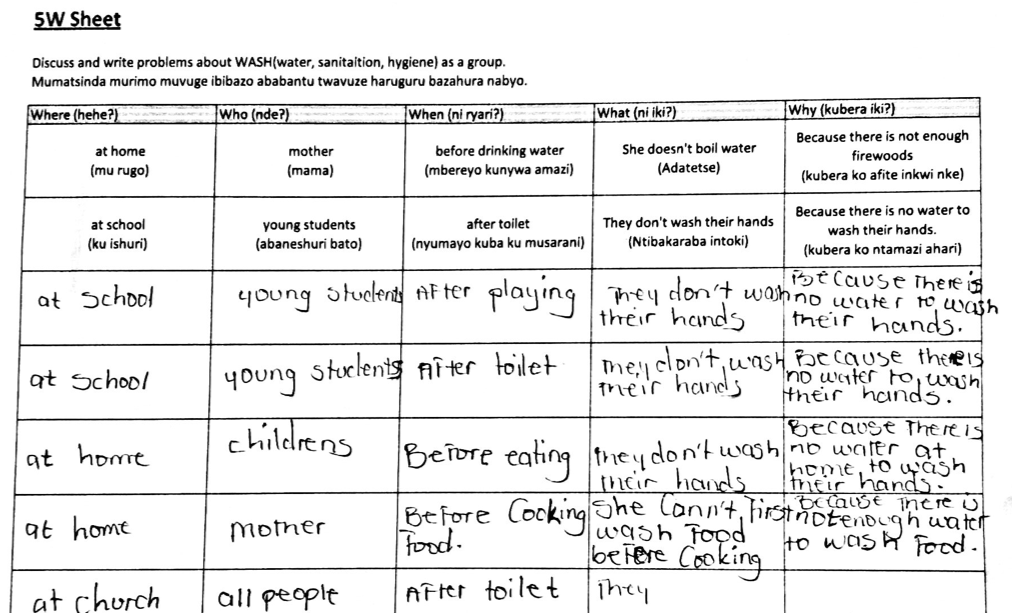 5W Sheet
Discuss and write problems about WASH(water, sanitaItion, hygiene) as a group.
Mumatsinda murimo muvuge ibibazo ababantu twavuze haruguru bazahura nabyo.
Where (hehe?) Who (nde?) When (ni ryari?) What (ni iki?) Why (kubera iki?)
at home
(mu rugo)
mother
(mama)
before drinking water
(mbereyo kunywa amazi)
She doesn't boil water
(Adatetse)
Because there is not enough
firewoods
(kubera ko afite inkwi nke)
at school
(ku ishuri)
young students
(abaneshuri bato)
after toilet
(nyumayo kuba ku musarani)
They don't wash their hands
(Ntibakaraba intoki)
Because there is no water to
wash their hands.
(kubera ko ntamazi ahari)
at school
young students
After playing
They don't wash
their hands
Because There is
no water to wash
their hands.
at school
young students
After toilet
They don't wash
their hands
Because there is
no water to wash
their hands.
at home
childrens
Before eating
they don't wash
their hands
Because There is
no water at
home to wash
their hands.
at home
mother
Before Cooking
food.
She Cann't First
wash Food
before Cooking
Because There is
not enough water
to wash Food.
at church
all people
After toilet
They